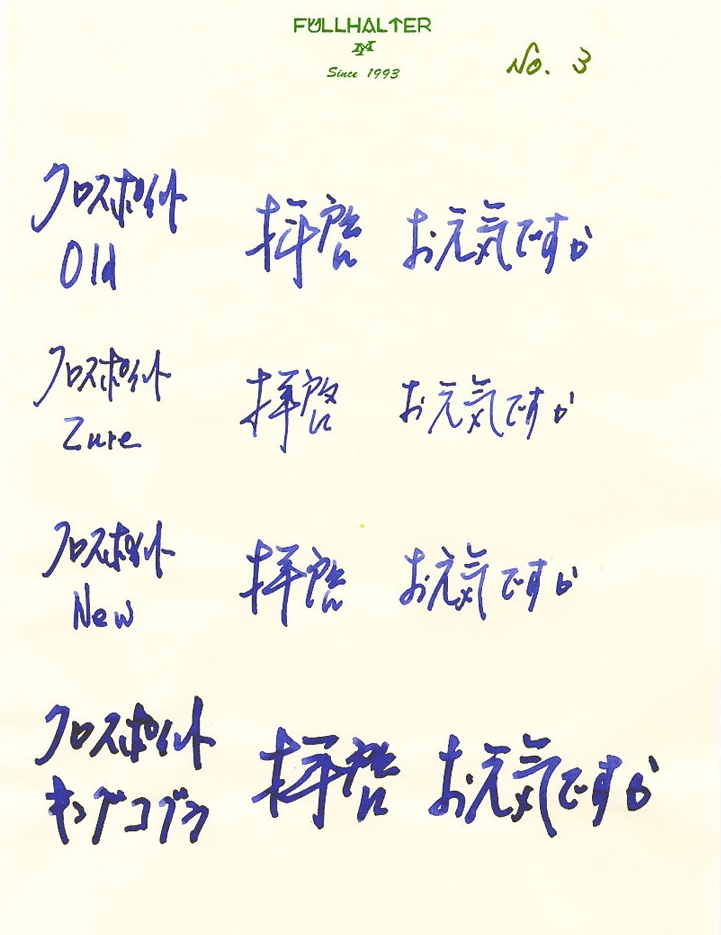 FULLHALTER
Since 1993
No. 3
クロスポイント 拝啓 お元気ですか
Old
クロスポイント 拝啓 お元気ですか
Zure
クロスポイント 拝啓 お元気ですか
New
クロスポイント 拝啓 お元気ですか
キングコブラ